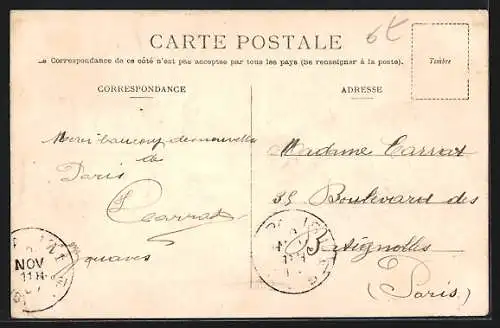 6€
CARTE POSTALE
Le Correspondance de ce côté n'est pas acceptee par tous les pays (Se renseigner à la poste).
Timbre
CORRESPONDANCE
ADRESSE
Merci baucoup de nouvelle
de
Paris
Carrat
Madame Carrat
35 Boulevard des
Batignolles
(Paris)
NOV